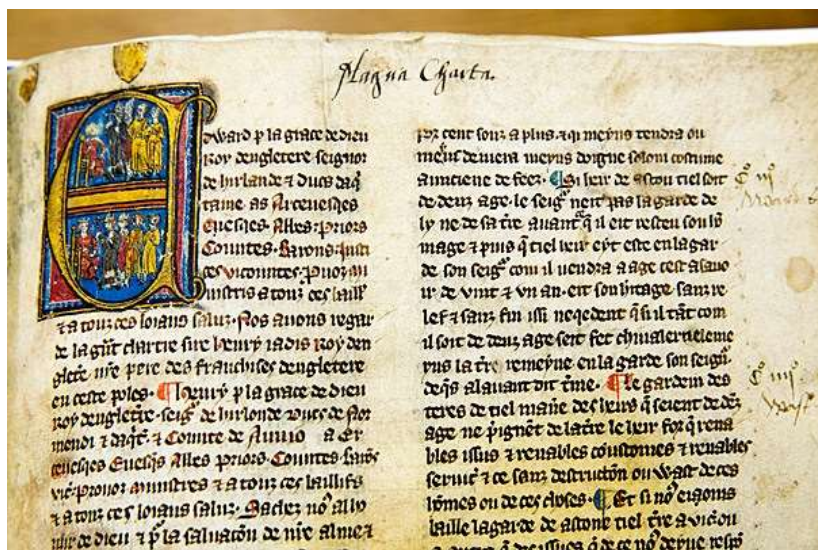 Magna Charta.
Edward p la grace de dieu
roy dengletere seignor
de hirlande ⁊ ducs daq̄
taine as Arcevesqes
Evesqes Abbes Priors
Countes Barons Justi
ces vicountes Provoz mi
nistris a touz ces baill
⁊ a touz ces loiaus saluz Nos avons regar
de la gñt chartre sire henry iadis roy den
gletē nrē pere des franchises dengletere
en ceste poles ¶ henry p la grace de dieu
roy dengletrē seigᷣ de hirlonde ducs de Nor
mendi ⁊ daqt̄ ⁊ Counte de a Er
cevesqes Evesqs Abbes priors Countes baroñs
vic provoz ministres ⁊ a touz ces baillifs
⁊ a touz ces loiaus saluz Sachez no⁹
de dieu ⁊ p̄ la salvacōn de nrē alme ⁊
por cent souz a plus ⁊ qi meyns tendra ou
meīns devera meyns doigne solom costume
aunciene de feez ¶ Si heir de ascou tiel soit
de denz age le seigᷣ neit pas la garde de
ly ne de sa tr̄e avant q̄ il eit resceu son hō
mage ⁊ puis q̄ tiel heir eyt este en la gar
de son seigᷣ com il vendra a age cest asavo
ir de vint ⁊ un an eit son h̄itage sanz re
lef ⁊ sanz fin issi neqedent q̄ si il tāt com
il soit de denz age seit fet chivaler neleme
yns la tr̄e remeyne en la garde son seigᷣ
deq̄s al avant dit t̄me ¶ Le gardein des
teres de tiel man̄e des heirs q̄ seient de dēz
age ne p̄ignēt de la tr̄e le heir for q̄ rena
bles issus ⁊ renables coustomes ⁊ renables
servic̄ ⁊ ce sanz destructōn ou wast de ces
hōmes ou de ces choses ¶ Et si no⁹ eioms
baille la garde de ascone tiel tr̄e a vic̄ ou
Cᵒ iijᵒ
Cᵒ iiijᵒ